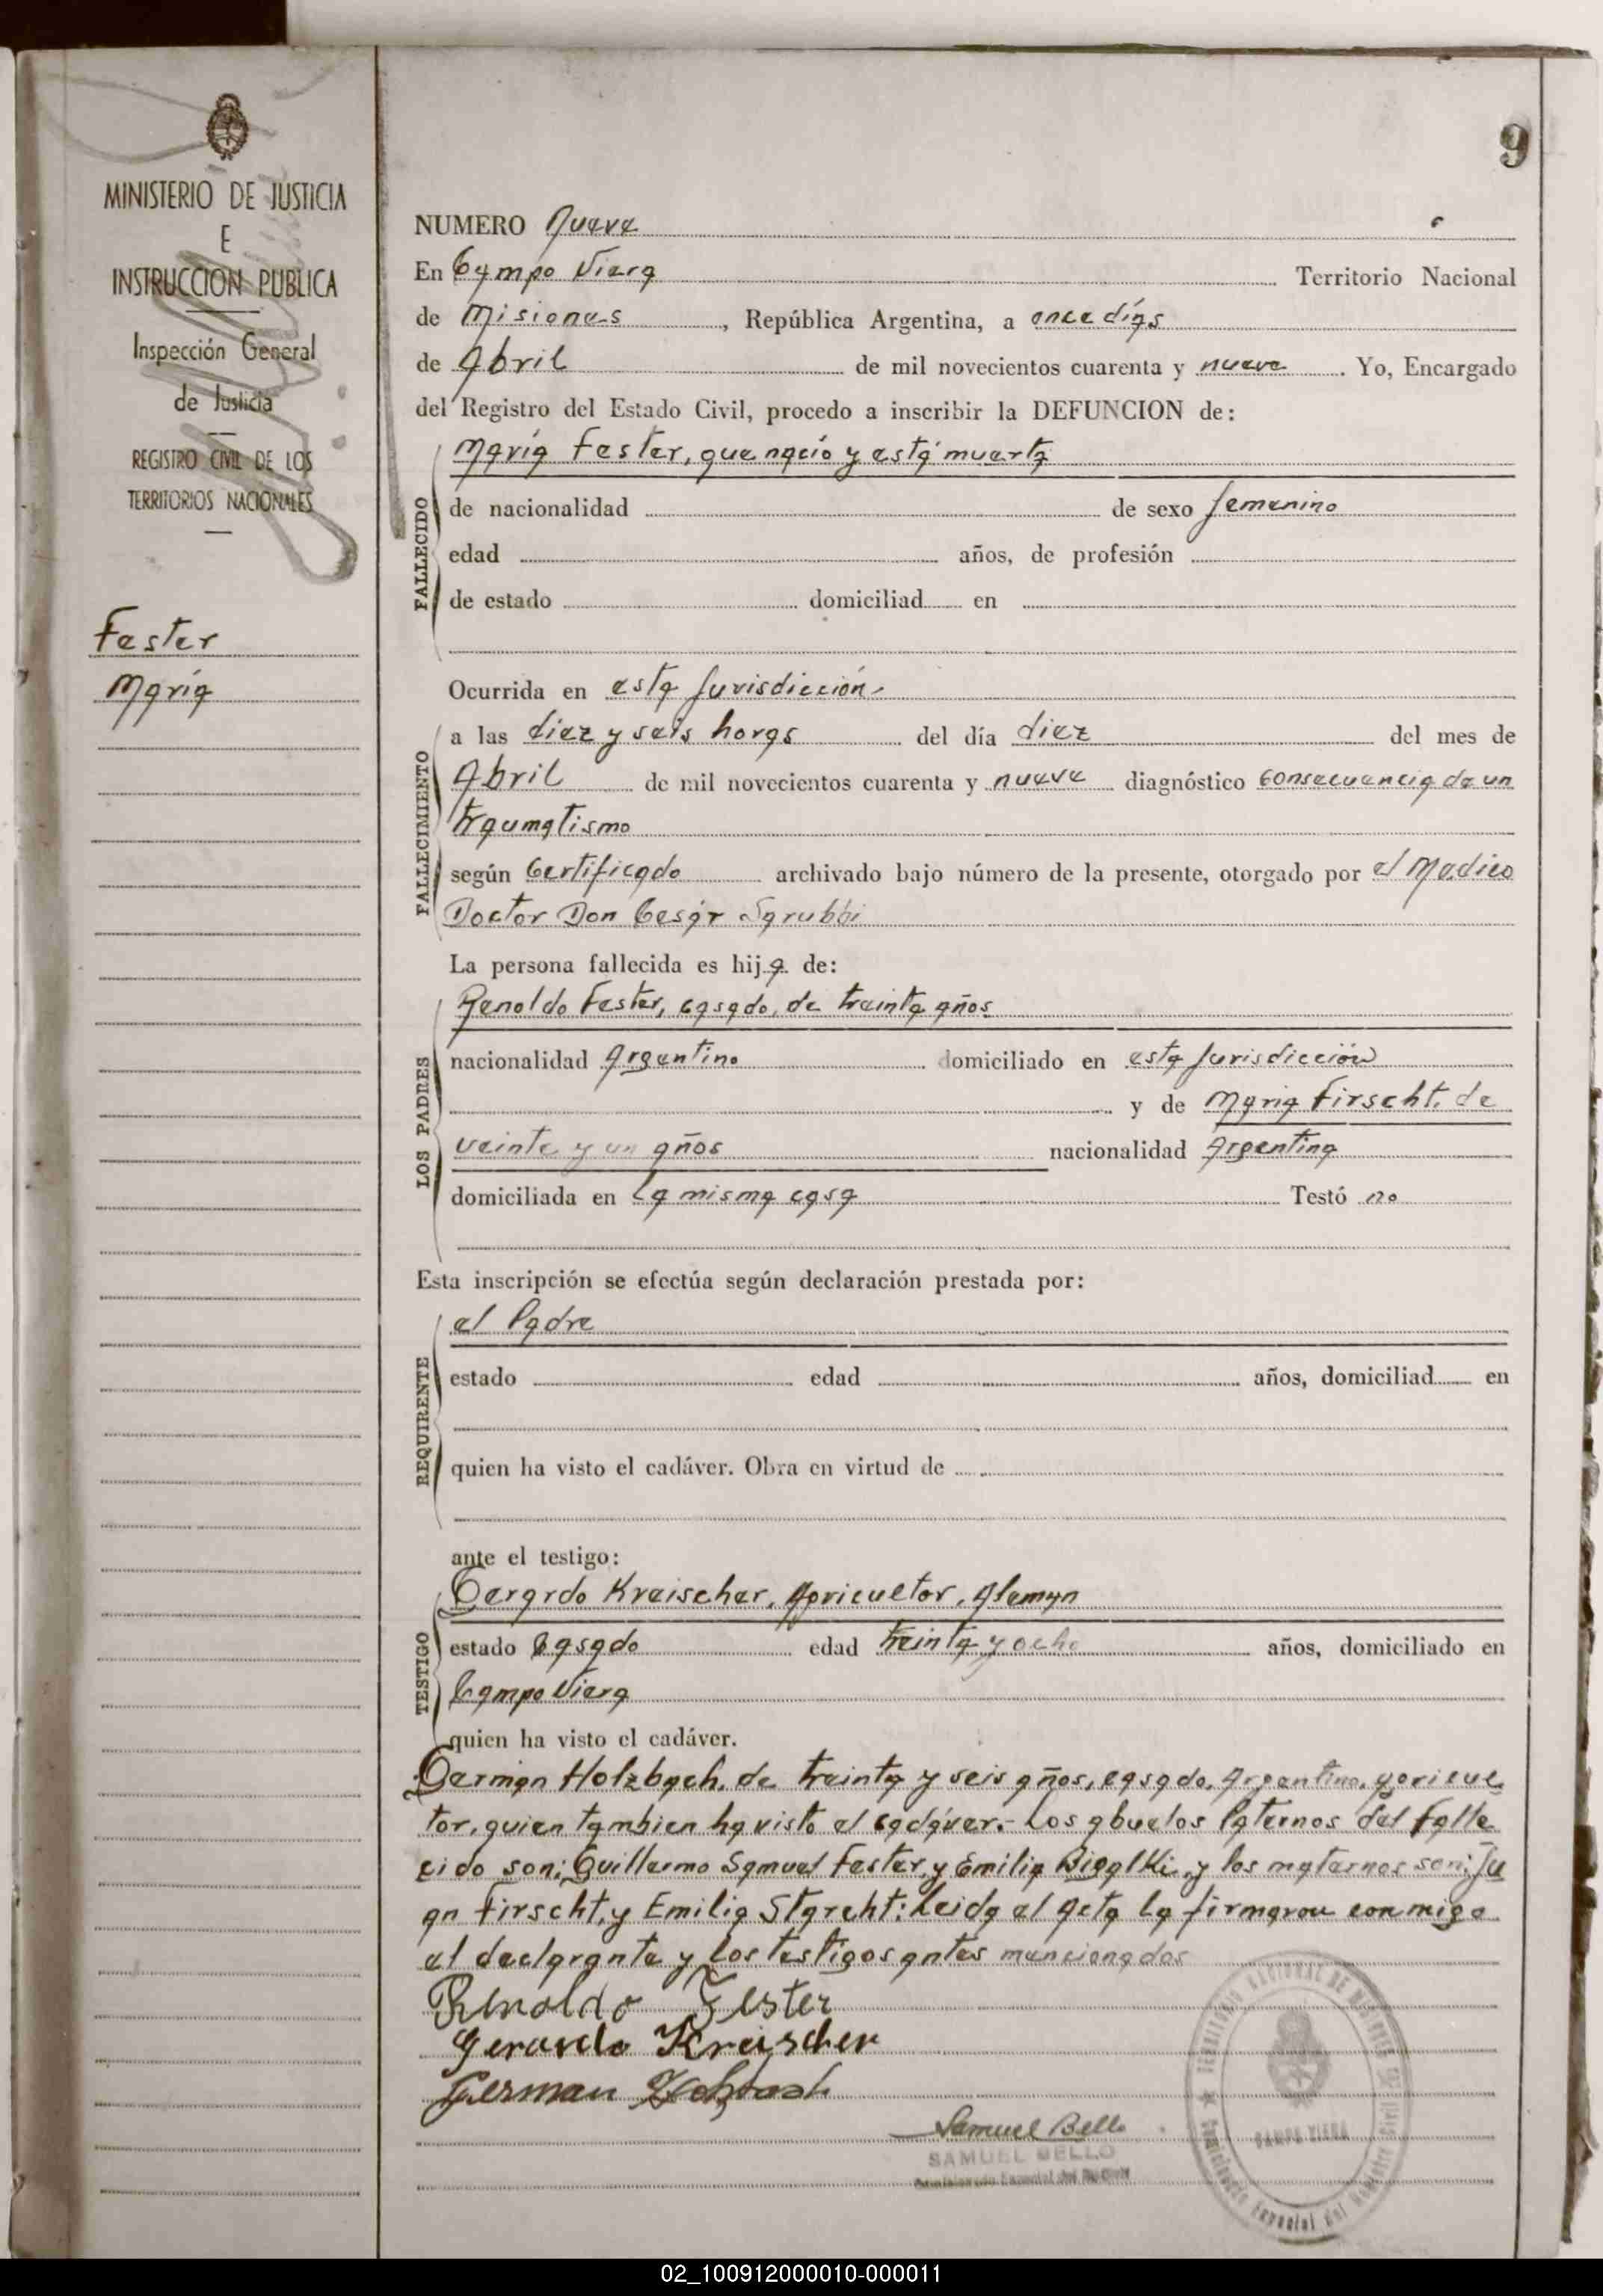 9
MINISTERIO DE JUSTICIA
E
INSTRUCCION PUBLICA
Inspección General
de Justicia
REGISTRO CIVIL DE LOS
TERRITORIOS NACIONALES
Fester
María
NUMERO Nueve
En Campo Viera Territorio Nacional
de Misiones, República Argentina, a once días
de Abril de mil novecientos cuarenta y nueve. Yo, Encargado
del Registro del Estado Civil, procedo a inscribir la DEFUNCION de:
FALLECIDO
María Fester, que nació y está muerta
de nacionalidad de sexo femenino
edad años, de profesión
de estado domiciliad en
Ocurrida en esta Jurisdicción.
FALLECIMIENTO
a las diez y seis horas del día diez del mes de
Abril de mil novecientos cuarenta y nueve diagnóstico Consecuencia de un
traumatismo
según Certificado archivado bajo número de la presente, otorgado por el Medico
Doctor Don Cesár Sgrubbi
La persona fallecida es hija de:
LOS PADRES
Renoldo Fester, casado, de treinta años
nacionalidad Argentino domiciliado en esta Jurisdicción
y de Maria Firscht, de
veinte y un años nacionalidad Argentina
domiciliada en La misma casa Testó no
Esta inscripción se efectúa según declaración prestada por:
REQUIRENTE
el Padre
estado edad años, domiciliad en
quien ha visto el cadáver. Obra en virtud de
ante el testigo:
TESTIGO
Gerardo Kreischer, Agricultor, Aleman
estado Casado edad treinta y ocho años, domiciliado en
Campo Viera
quien ha visto el cadáver.
German Holzbach, de treinta y seis años, casado, Argentino, agricul
tor, quien tambien ha visto el cadáver.- Los abuelos Paternos del falle
cido son; Guillermo Samuel Fester, y Emilia y los maternos son; Ju
an Firscht, y Emilia Starcht; Leida el Acta la firmaron conmigo
el declarante y los testigos antes mencionados
Renoldo Fester
Gerardo Kreischer
German Holzbach
Samuel Bello
SAMUEL BELLO
Comisionado Especial del Reg. Civil
TERRITORIO NACIONAL DE MISIONES
CAMPO VIERA
Comisionado Especial del Registro Civil
02_100912000010-000011